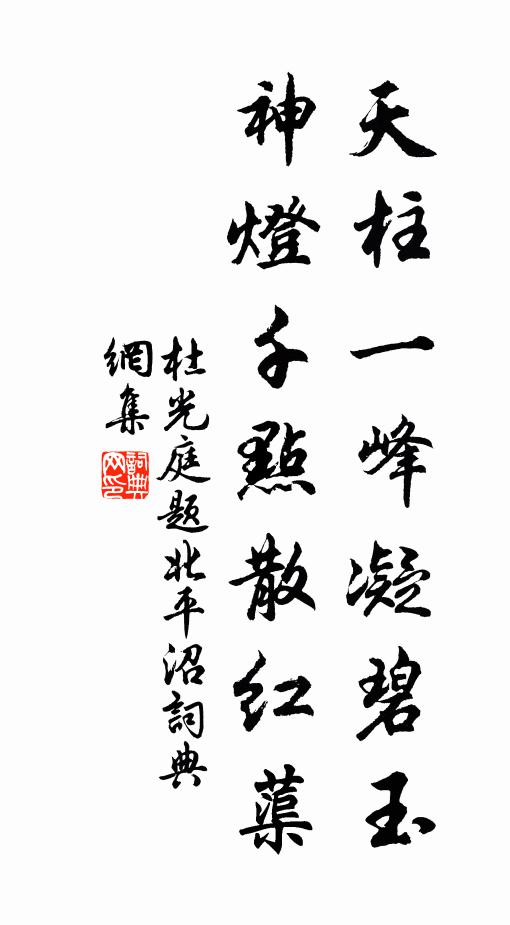 天柱一峰凝碧玉
神燈千點散红蕖
杜光庭题北平沼詞典
網集
詞典網印